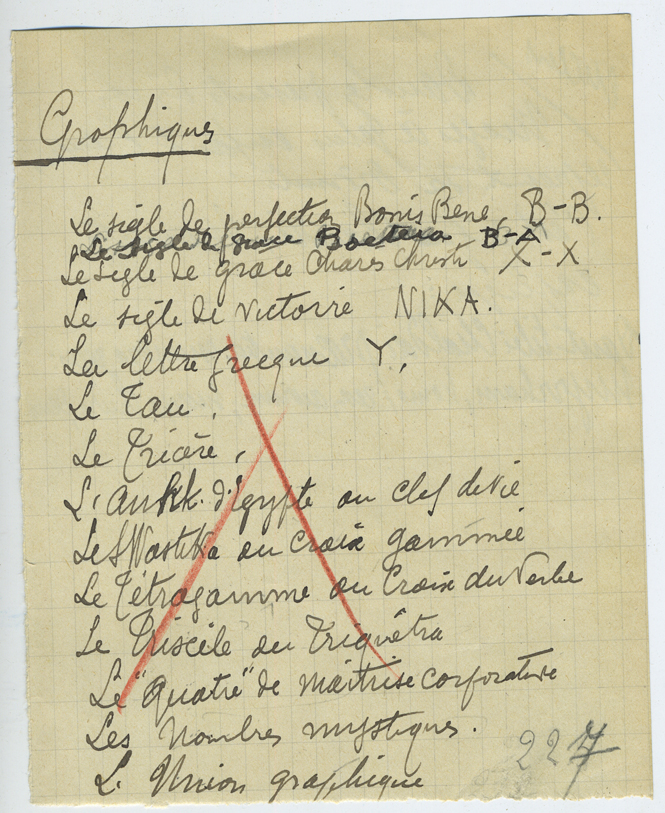 Graphiques
Le sigle de perfection Bonis Bene, B-B.
Le sigle de grace B-A
Le sigle de grâce Chares Christi X-X
Le sigle de victoire NIKA.
La lettre grecque Y,
Le Tau,
Le Tricère,
L'ankh d'Egypte ou clef de vie
Le SWastika ou croix gammée
Le Tétragamme ou Croix du Verbe
Le Triscèle ou Triquêtra
Le "Quatre" de Maitrise corporative
Les Nombres mystiques.
L'Union graphique
227